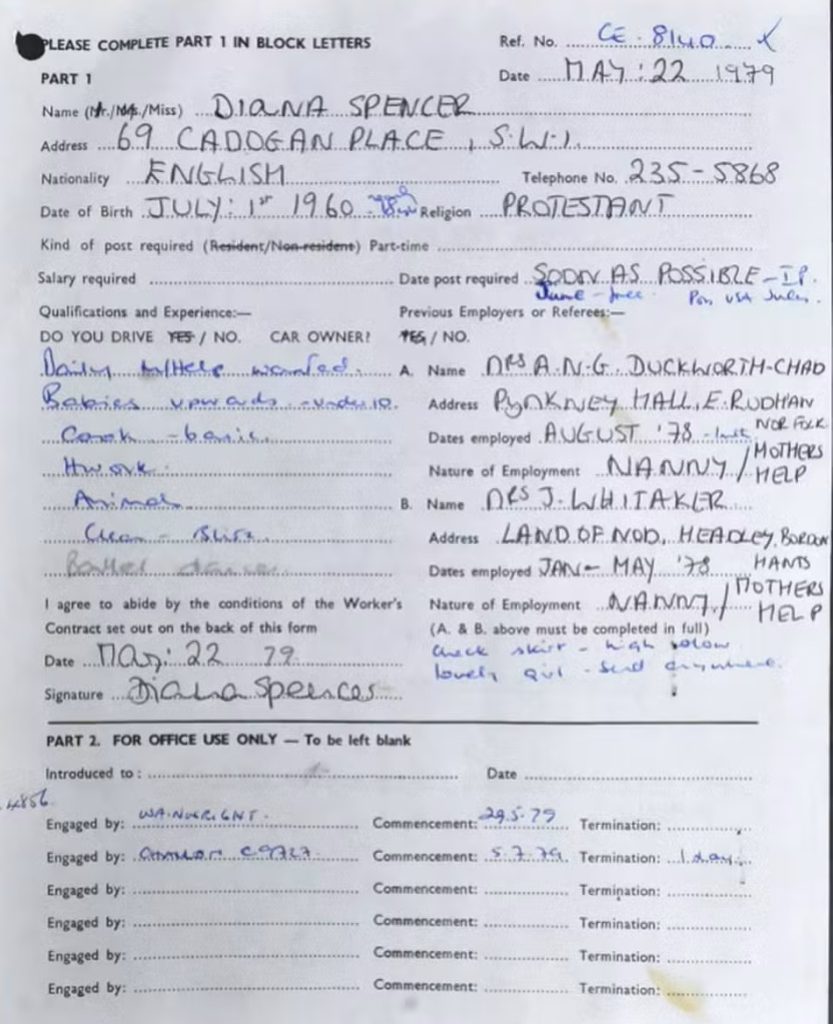 PLEASE COMPLETE PART 1 IN BLOCK LETTERS Ref. No. CE-8140
PART 1 Date MAY:22 1979
Name (Mr./Mrs./Miss) DIANA SPENCER
Address 69 CADOGAN PLACE, S.W.1.
Nationality ENGLISH Telephone No. 235-5868
Date of Birth JULY: 1ST 1960 Religion PROTESTANT
Kind of post required (Resident/Non-resident) Part-time
Salary required Date post required SOON AS POSSIBLE
June - free.
Qualifications and Experience:— Previous Employers or Referees:—
DO YOU DRIVE YES / NO. CAR OWNER? YES / NO.
Daily M/Help wanted. A. Name MRS A.N.G. DUCKWORTH-CHAD
Babies upwards - under 10. Address PYNKNEY HALL, E. RUDHAN NORFOLK
Cook - basic Dates employed AUGUST '78
Hwork. Nature of Employment NANNY / MOTHERS HELP
Animals B. Name MRS J. WHITAKER
Clean Address LAND OF NOD, HEADLEY, BORDON HANTS
Ballet Dates employed JAN - MAY '78
I agree to abide by the conditions of the Worker's Nature of Employment NANNY / MOTHERS HELP
Contract set out on the back of this form (A. & B. above must be completed in full)
Date May: 22 79. check skirt - high
Signature Diana Spencer lovely girl - send anywhere.
PART 2. FOR OFFICE USE ONLY — To be left blank
Introduced to : Date
Engaged by: Commencement: 29.5.79 Termination:
Engaged by: Commencement: 5.7.79. Termination: 1 day.
Engaged by: Commencement: Termination:
Engaged by: Commencement: Termination:
Engaged by: Commencement: Termination:
Engaged by: Commencement: Termination: